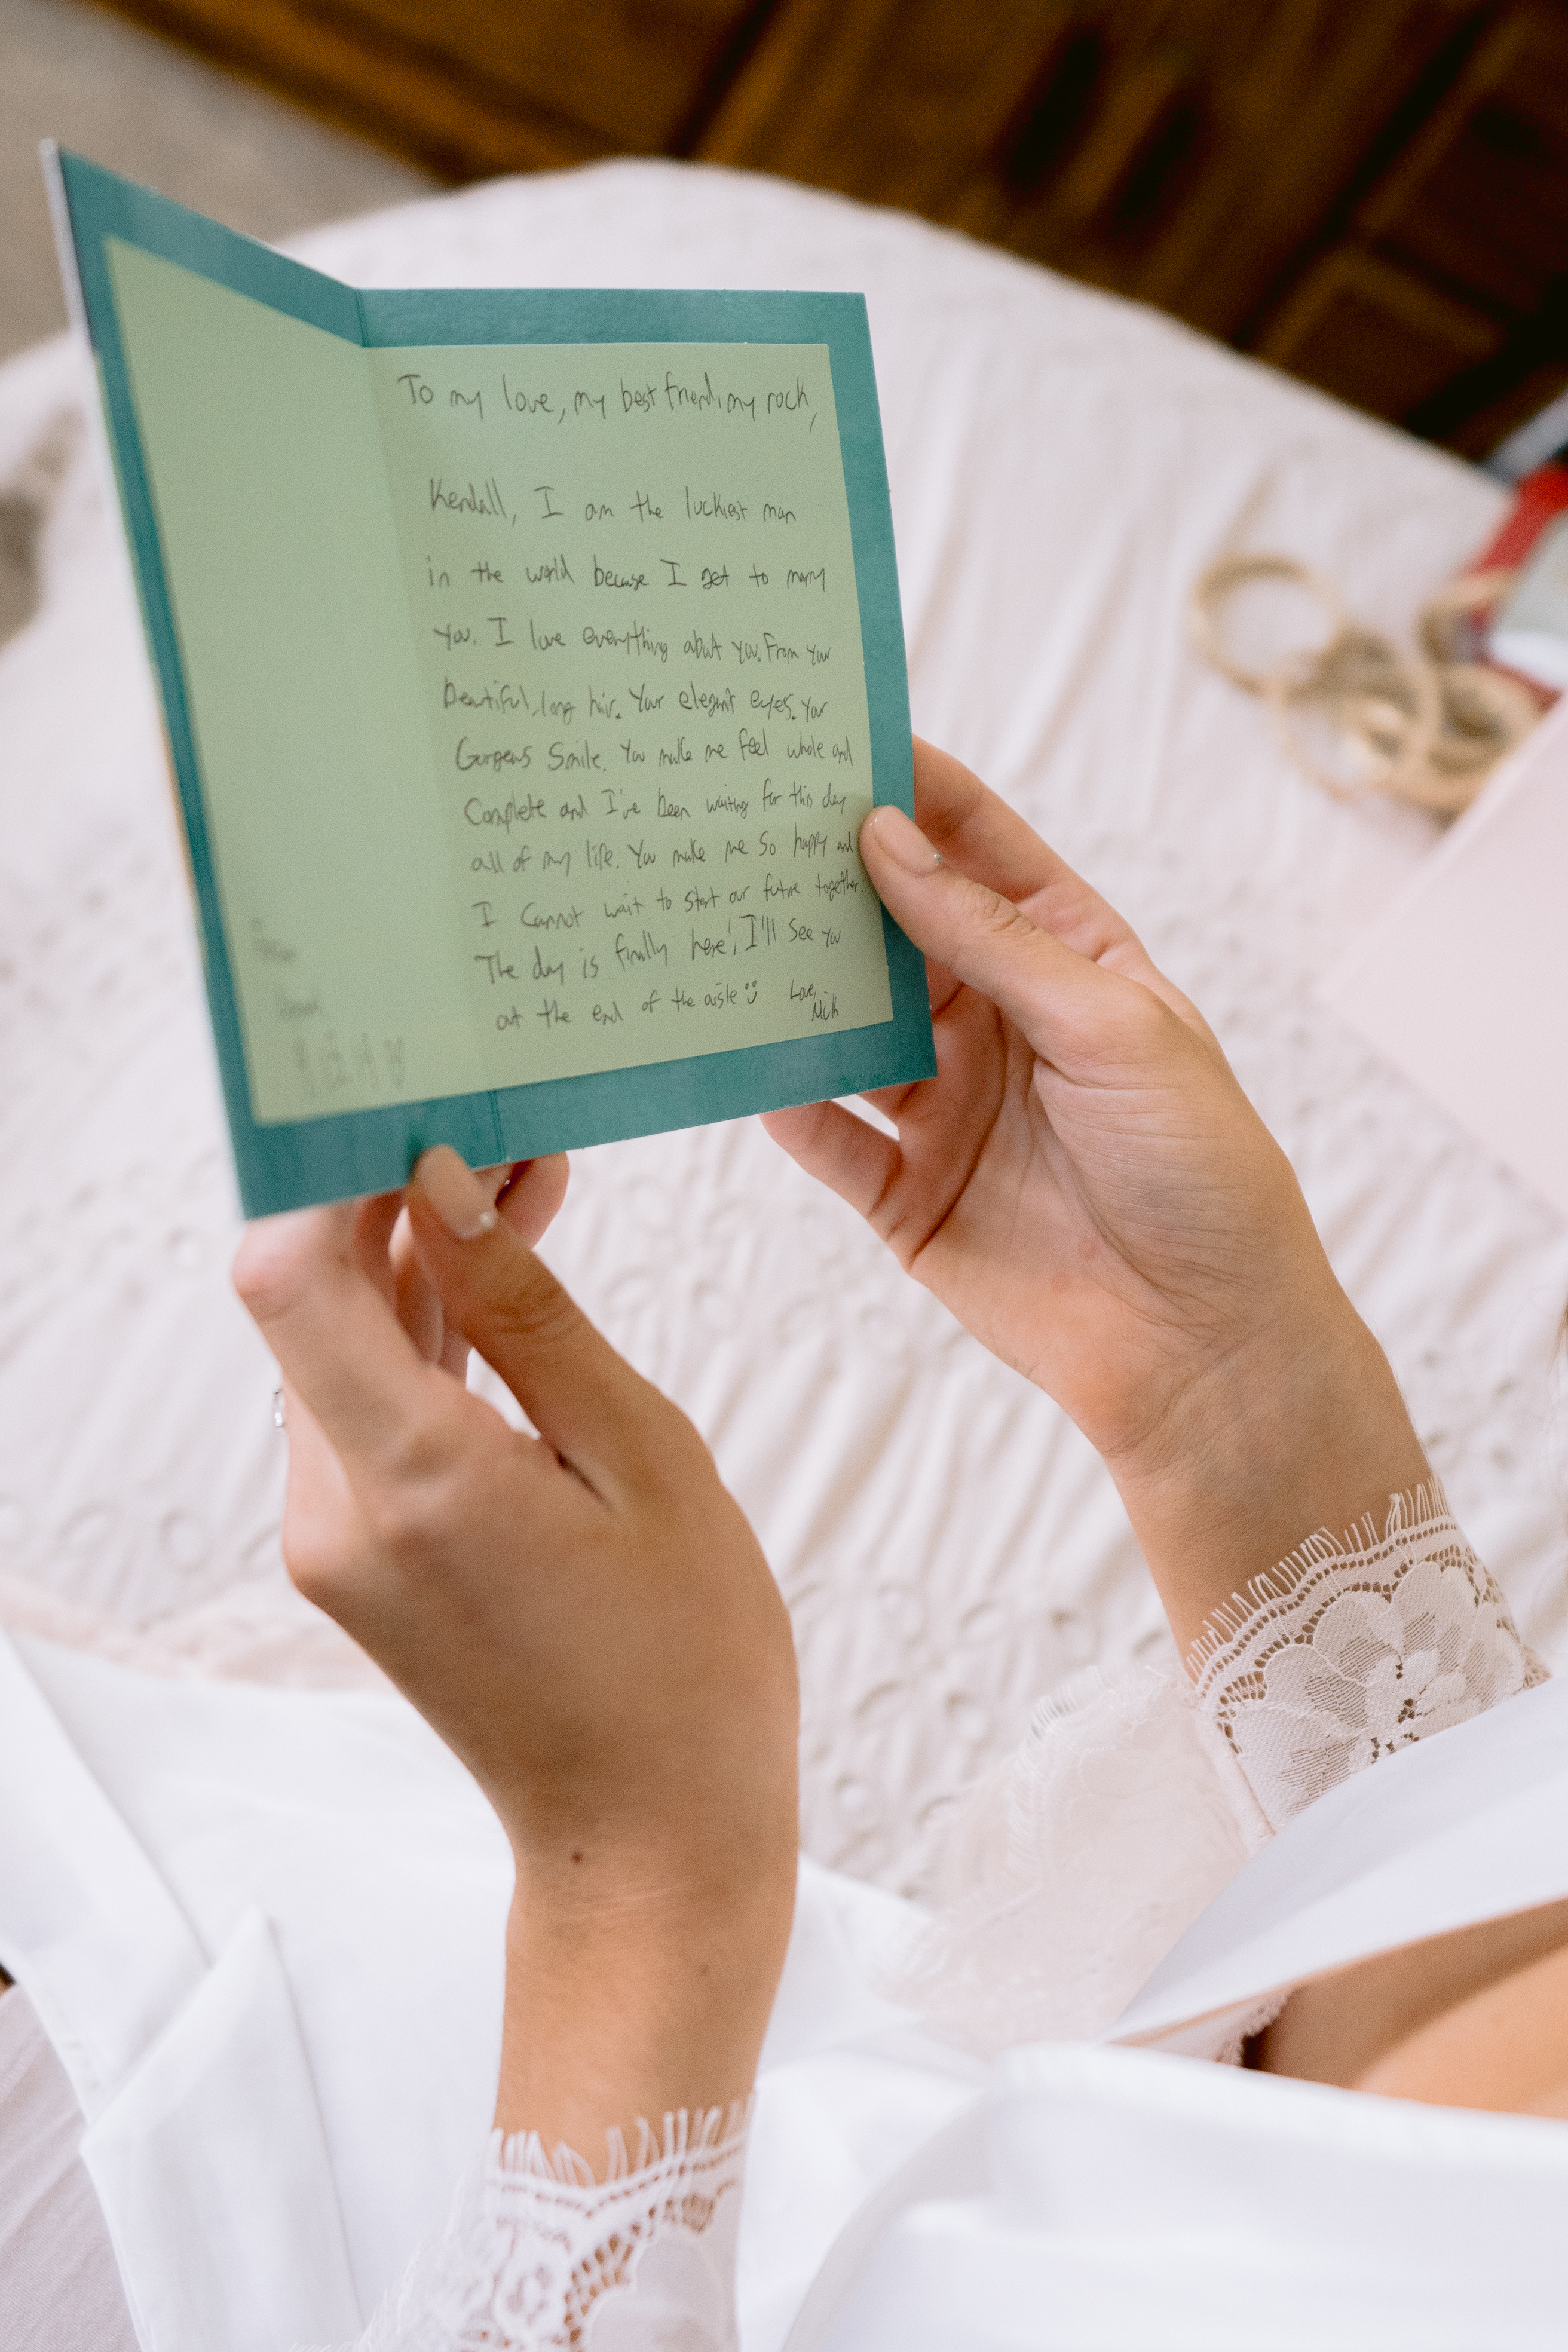 To my love, my best friend, my rock,
Kendall, I am the luckiest man
in the world because I get to marry
you. I love everything about you. From your
beautiful, long hair. Your elegant eyes. Your
Gorgeous Smile. You make me feel whole and
Complete and I've been waiting for this day
all of my life. You make me so happy and
I Cannot wait to start our future together.
The day is finally here! I'll See you
at the end of the aisle
Love,
Nick